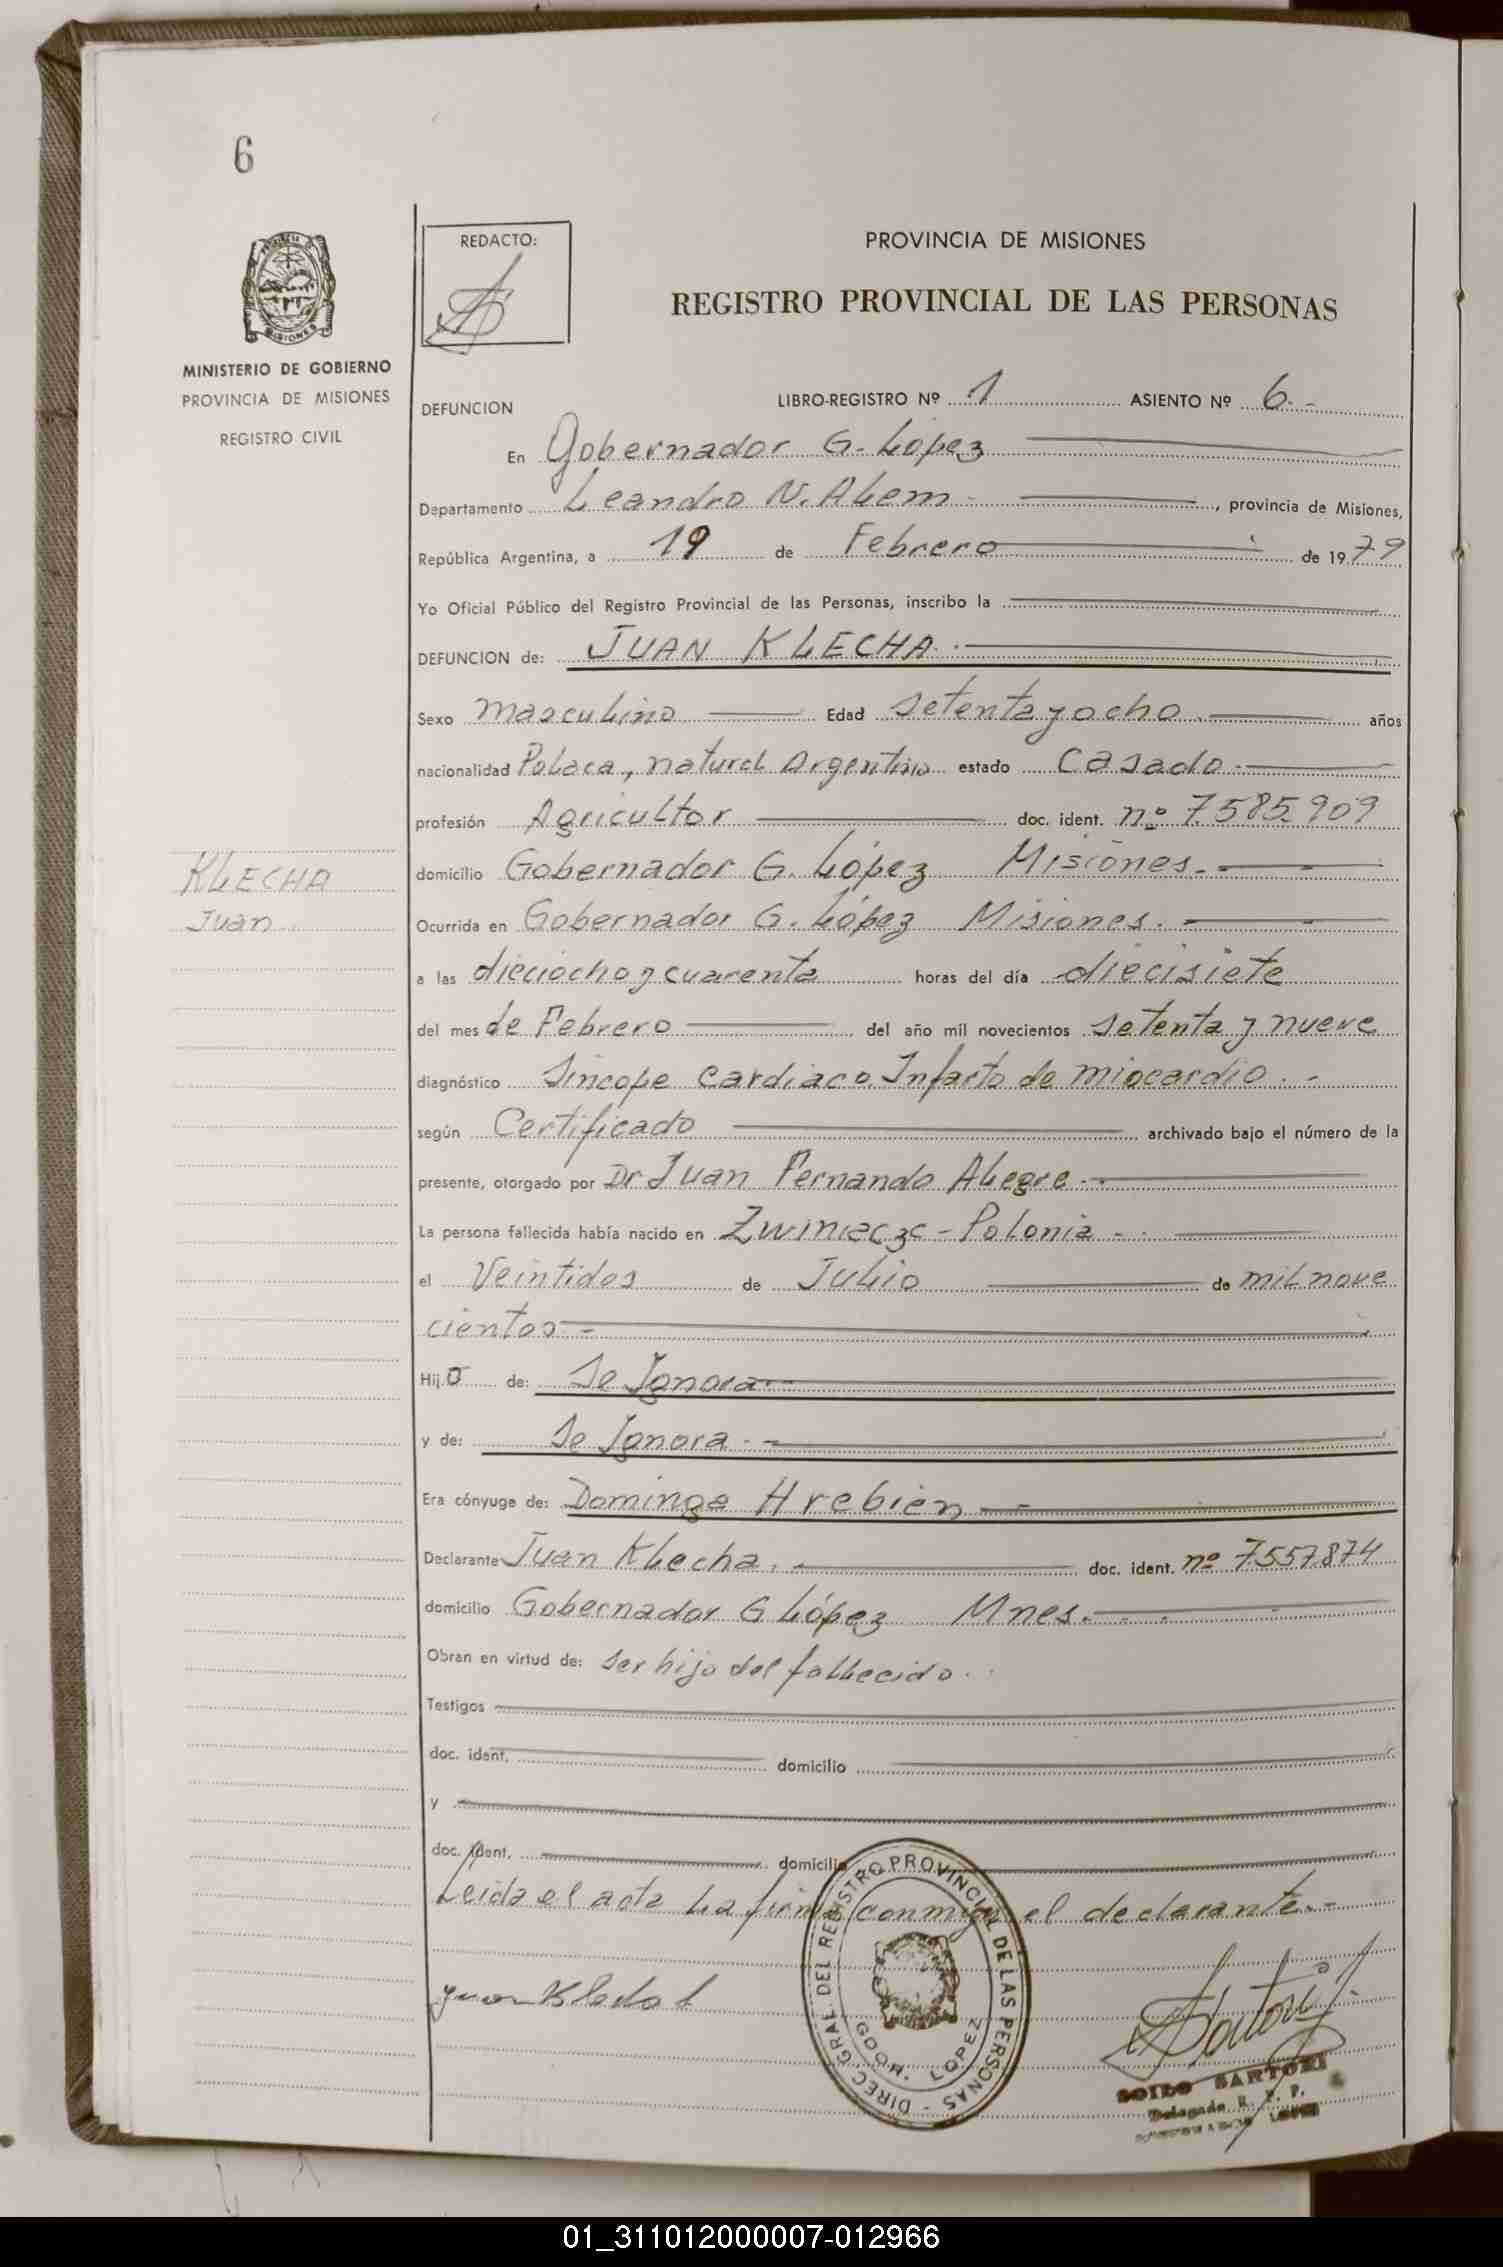 6
REDACTO:
PROVINCIA DE MISIONES
REGISTRO PROVINCIAL DE LAS PERSONAS
MISIONES
MINISTERIO DE GOBIERNO
PROVINCIA DE MISIONES
REGISTRO CIVIL
DEFUNCION
LIBRO-REGISTRO Nº 1 ASIENTO Nº 6.-
En Gobernador G. López
Departamento Leandro N. Alem , provincia de Misiones,
República Argentina, a 19 de Febrero de 1979
Yo Oficial Público del Registro Provincial de las Personas, inscribo la
DEFUNCION de: JUAN KLECHA.
Sexo masculino Edad setenta y ocho. años
nacionalidad Polaca, natural Argentino estado casado.
profesión Agricultor doc. ident. nº 7.585.909
KLECHA
Juan
domicilio Gobernador G. López Misiones.
Ocurrida en Gobernador G. López Misiones.
a las dieciocho y cuarenta horas del día diecisiete
del mes de Febrero del año mil novecientos setenta y nueve
diagnóstico Sincope cardiaco. Infarto de miocardio.-
según Certificado archivado bajo el número de la
presente, otorgado por Dr Juan Fernando Alegre.
La persona fallecida había nacido en Zwiniacze - Polonia.
el Veintidos de Julio de mil nove
cientos.-
Hijo de: Se Ignora.
y de: Se Ignora.-
Era cónyuge de: Dominga Hrebien
Declarante Juan Klecha. doc. ident. nº 7.557.874
domicilio Gobernador G López Mnes.
Obran en virtud de: ser hijo del fallecido.
Testigos
doc. ident. domicilio
y
doc. ident. domicilio
Leida el acta la firma conmigo el declarante.-
DIREC. GRAL. DEL REGISTRO PROVINCIAL DE LAS PERSONAS -
GDOR. LOPEZ
SARTORI
Delegado R. P. P.
LOPEZ
01_311012000007-012966